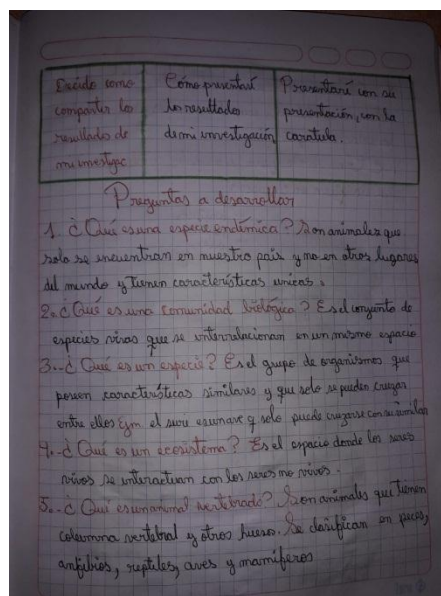 Decido como
compartir los
resultados de
mi investigac.
Cómo presentaré
los resultados
de mi investigación
Presentaré con su
presentación, con la
caratula.
Preguntas a desarrollar
1. ¿Qué es una especie endémica? Son animales que
solo se encuentran en nuestro país y no en otros lugares
del mundo y tienen características unicas.
2. ¿Qué es una comunidad biológica? Es el conjunto de
especies vivas que se interrelacionan en un mismo espacio
3.- ¿Qué es un especie? Es el grupo de organismos que
poseen características similares y que solo se pueden cruzar
entre ellos ejm. el suri es un ave q solo puede cruzarse con su similar
4.- ¿Qué es un ecosistema? Es el espacio donde los seres
vivos se interactuan con los seres no vivos.
5.- ¿Qué es un animal vertebrado? Son animales que tienen
columna vertebral y otros hueso. Se clasifican en peces,
anfibios, reptiles, aves y mamíferos